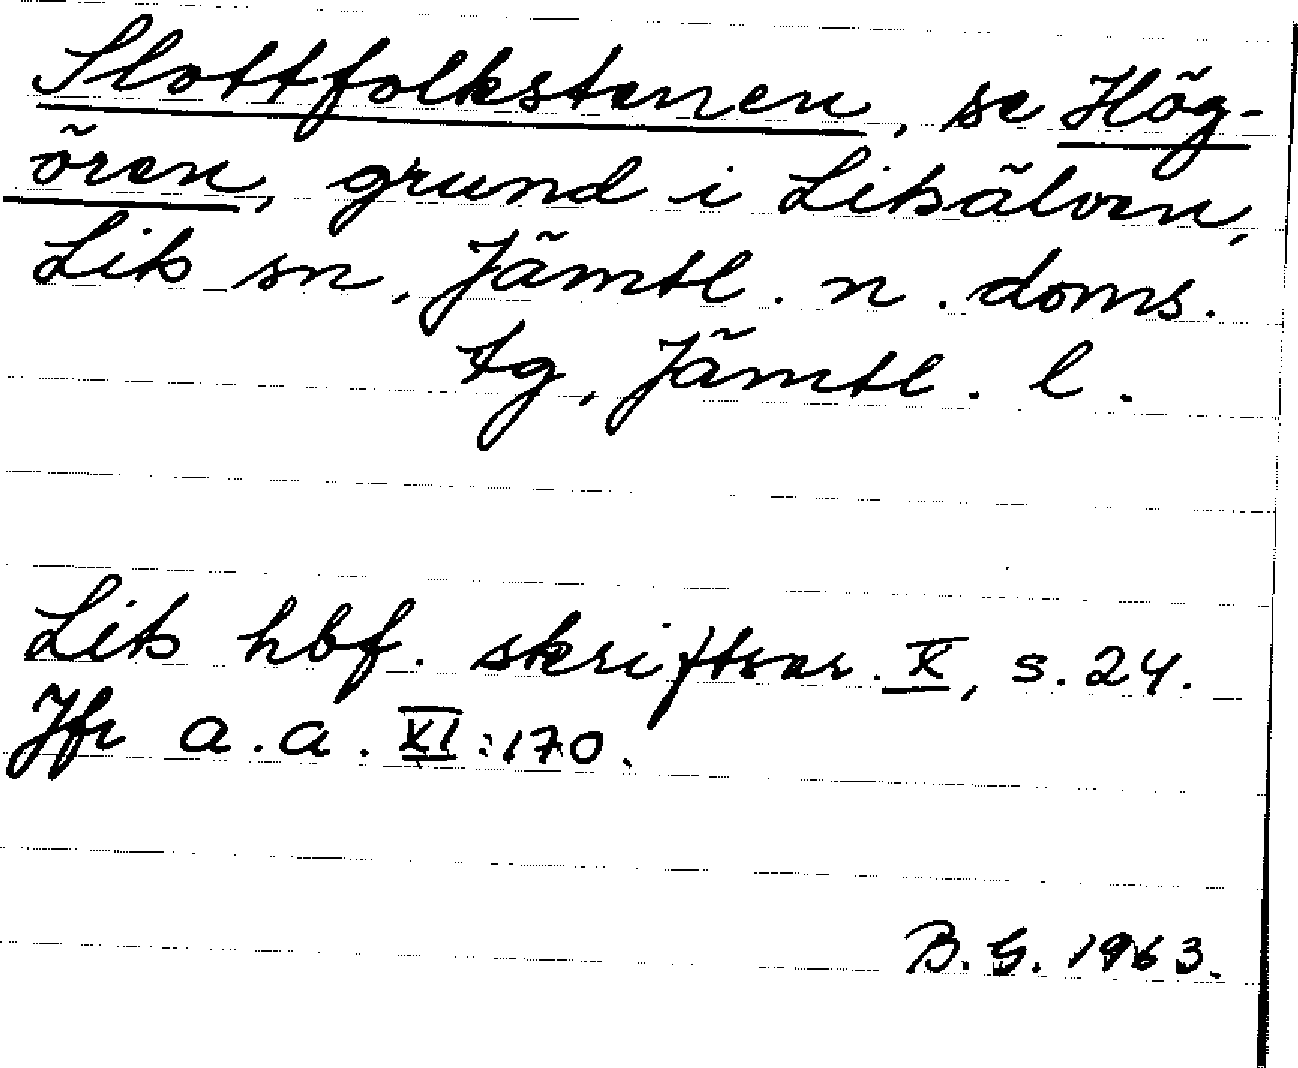 Slottfolkstenen, se Hög-
ören, grund i Litsälven,
Lits sn, Jämtl. n. doms.
tg, Jämtl. l.
Lits hbf. skriftser. X, s. 24.
Jfr a.a. XI:170.
B.G. 1963.